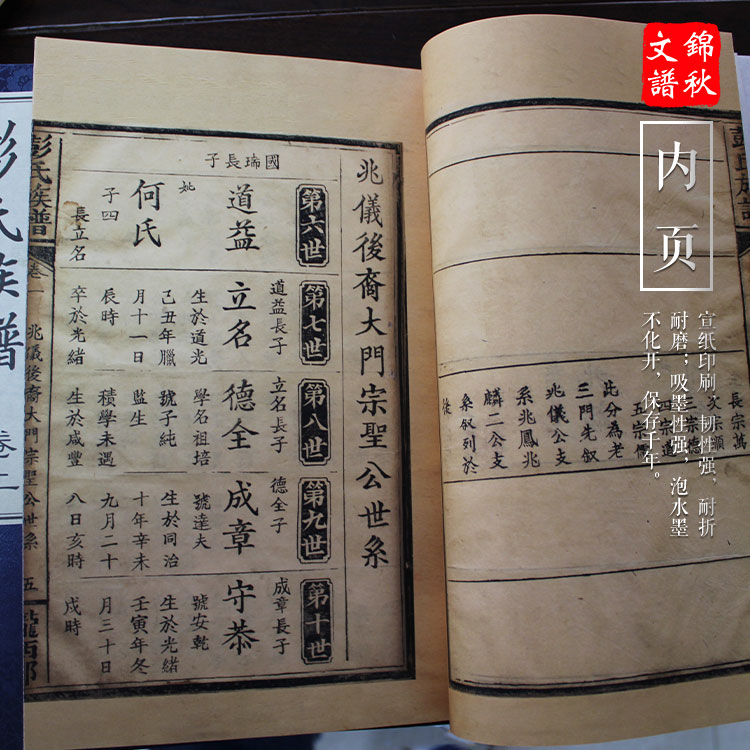 錦秋
文譜
内页
宣纸印刷，韧性强，耐折
耐磨；吸墨性强，泡水墨
不化开，保存千年。
長宗萬
三宗德
四宗道
此分為老
三門先叙
兆儀公支
系兆鳳兆
麟二公支
系叙列於
後
兆儀後裔大門宗聖公世系
第六世
國瑞長子
道益
妣
何氏
子四
長立名
第七世
道益長子
立名
生於道光
己丑年臘
月十一日
辰時
卒於光緒
第八世
立名長子
德全
學名祖培
號子純
監生
積學未遇
生於咸豐
第九世
德全子
成章
號達夫
生於同治
十年辛未
九月二十
八日亥時
第十世
成章長子
守恭
號安乾
生於光緒
壬寅年冬
月三十日
戌時
彭氏族譜
卷一
兆儀後裔大門宗聖公世系
五
隴西郡
彭氏族譜